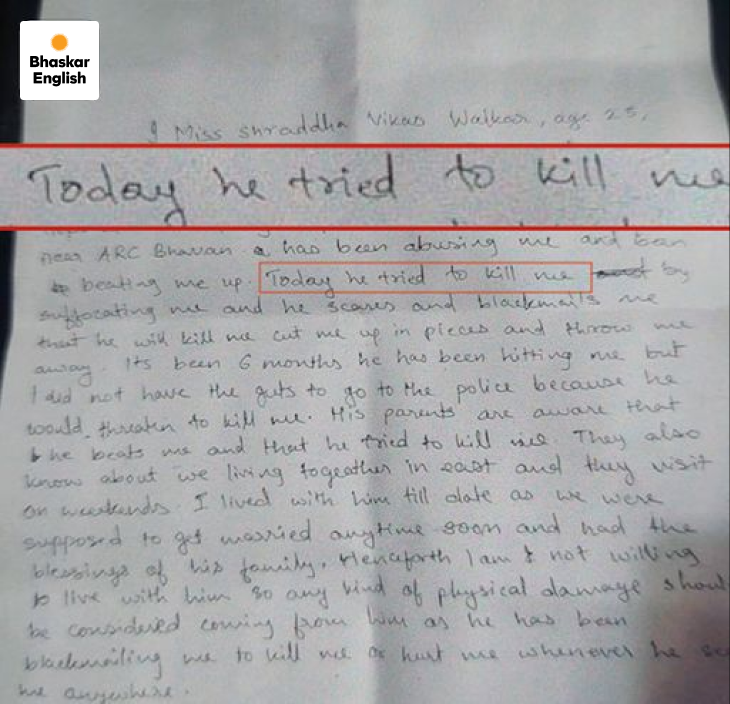 Bhaskar
English
I Miss Shraddha Vikas Walkar, age 25,
Today he tried to kill me
near ARC Bhavan has been abusing me and been
beating me up. Today he tried to kill me by
suffocating me and he scares and blackmails me
that he will kill me cut me up in pieces and throw me
away. Its been 6 months he has been hitting me but
I did not have the guts to go to the police because he
would threaten to kill me. His parents are aware that
he beats me and that he tried to kill me. They also
know about we living togeather in and they visit
on weekends. I lived with him till date as we were
supposed to get married anytime soon and had the
blessings of his family. Henceforth I am not willing
to live with him so any kind of physical damage shoul
be considered coming from him as he has been
blackmailing me to kill me or hurt me whenever he se
me anywhere.